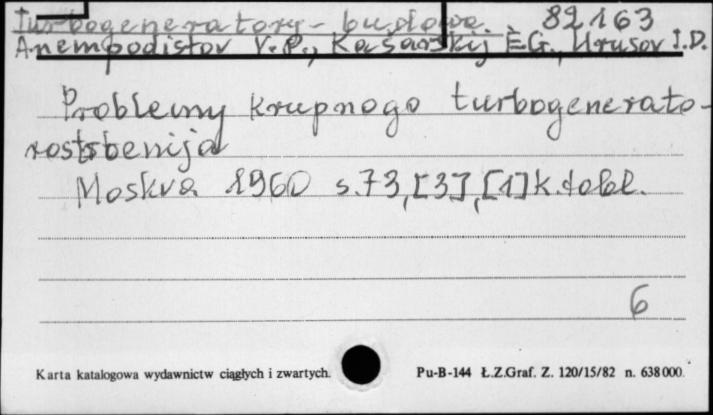 Turbogeneratory - budowa. 82163
Anempodistov V.P., Kašarskij È.G., Urusov I.D.
Problemy krupnogo turbogenerato-
rostroenija
Moskva 1960 s.73,[3],[1]k.tabl.
6
Karta katalogowa wydawnictw ciągłych i zwartych.
Pu-B-144 Ł.Z.Graf. Z. 120/15/82 n. 638000.